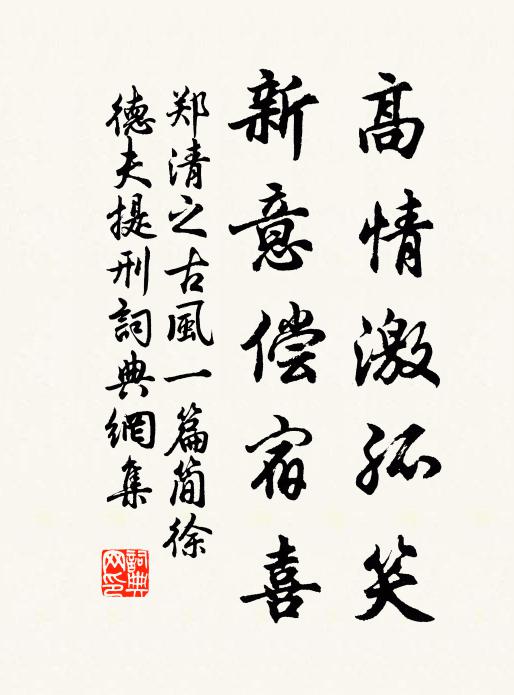 高情激孤笑
新意偿宿喜
郑清之古風一篇简徐
德夫提刑詞典網集
詞典网印